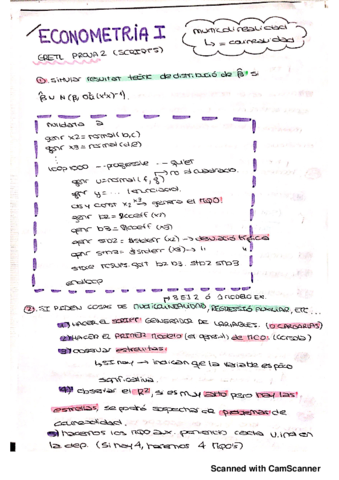 ECONOMETRIA I
multicolinealidad
↳ = colinealidad
GRETL PROVA 2 (SCRIPTS)
① simular resultat teòric de distribució de β̂'s
β̂ ~ N(β, σ²(x'x)⁻¹).
nulldata a
genr x2 = normal(b,c)
genr x3 = normal(d,e)
loop 1000 --progressive --quiet
genr u = normal(f, g)
genr y = ... (enunciado).
ols y const x2 x3 → genera el MQO!
genr b2 = $coeff(x2)
genr b3 = $coeff(x3)
genr std2 = $stderr(x2) → desviació típica
genr std3 = $stderr(x3) →
store b2 b3 std2 std3
endloop
② SI PIDEN COSAS DE MULTICOLINEALIDAD, REGRESSIÓ AUXILIAR, ETC...
HACER EL SCRIPT GENERADOR DE VARIABLES. (O CARGARLAS)
HACER EL PRIMER MODELO (el general) de MCO. (consola)
observar estrellitas:
↳ Si hay → indican que la variable es poco
significativa.
observar el R², si es muy alto pero hay las
estrellas, se podrá sospechar de problemas de
colinealidad.
hacemos los MQO aux. poniendo cada v. ind en
la dep. (si hay 4, haremos 4 MQO's)
Scanned with CamScanner